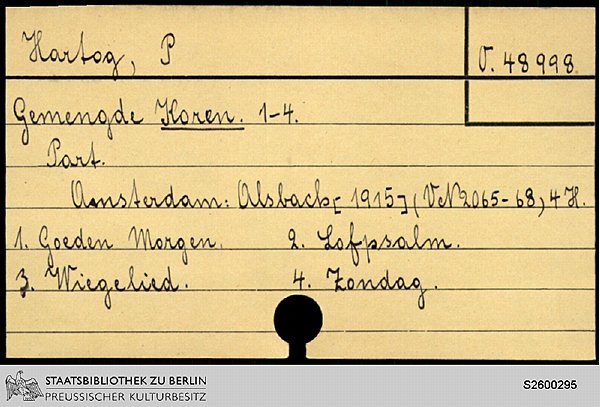 Hartog, P
O. 48998.
Gemengde Koren. 1-4.
Part.
Amsterdam: Alsbach[1915] (VN2065-68) 4 H.
1. Goeden Morgen. 2. Lofpsalm.
3. Wiegelied. 4. Zondag.
STAATSBIBLIOTHEK ZU BERLIN
PREUSSISCHER KULTURBESITZ
S2600295